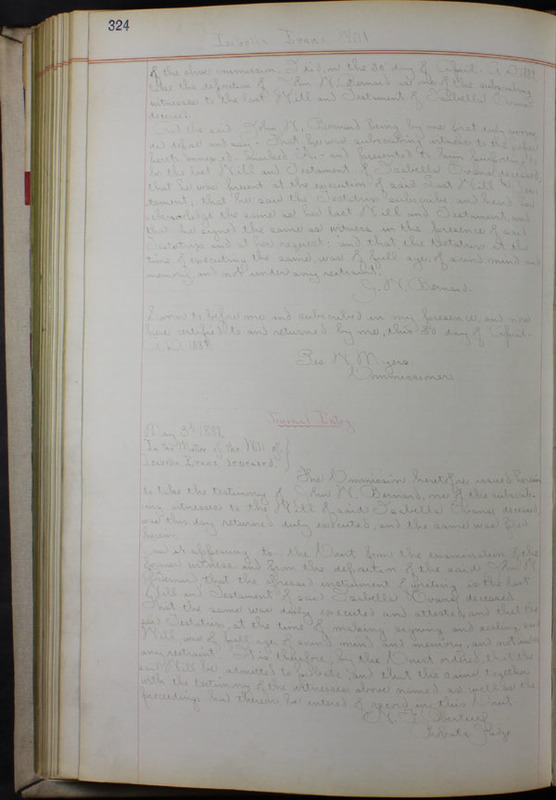 324
Isabella Evans Will
of the above commission I did, on the 30 day of April A.D. 188
take the deposition of John N. Bernard one of the subscribing
witnesses to the last Will and Testament of Isabella Evans
deceased.
And the said John N. Bernard being by me first duly sworn,
did depose and say: That he was subscribing witness to the paper
hereto annexed marked "A" and presented to him purporting to
be the last Will and Testament of Isabella Evans deceased,
that he was present at the execution of said Last Will and Tes-
tament; that he saw the Testatrix subscribe and heard her
acknowledge the same as her last Will and Testament, and
that he signed the same as witness in the presence of said
Testatrix and at her request; and that the Testatrix at the
time of executing the same, was of full age, of sound mind and
memory, and not under any restraint.
J. N. Bernard.
Sworn to before me and subscribed in my presence, and now
here certified to and returned by me, this 30 day of April
A.D. 188
Geo N. Myers
Commissioner
Journal Entry
May 3d 188
In the Matter of the Will of
Isabella Evans deceased.
The Commission heretofore issued herein
to take the testimony of John N. Bernard, one of the subscrib-
ing witnesses to the Will of said Isabella Evans deceased
was this day returned duly executed, and the same was filed
herein.
And it appearing to the Court from the examination of the
former witness and from the deposition of the said John N.
Bernard that the aforesaid instrument of writing is the last
Will and Testament of said Isabella Evans deceased
That the same was duly executed and attested, and that the
said Testatrix, at the time of making signing and sealing said
Will was of full age of sound mind and memory, and not under
any restraint. It is therefore, by the Court ordered, that the
said Will be admitted to probate; and that the same together
with the testimony of the witnesses above named as well as the
proceedings had thereon be entered of record in this Court
Probate Judge